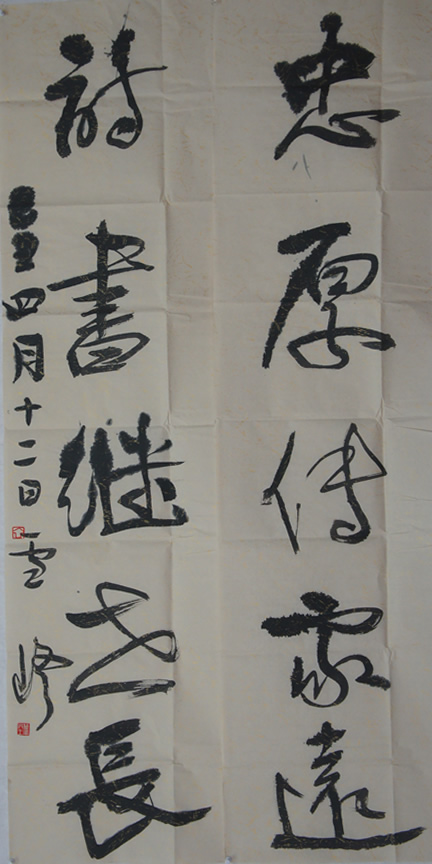 忠厚傳家遠
詩書继世長
四月十二日雪峰